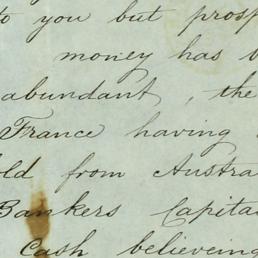 to you but prosp
money has b
abundant, the
France having
old from Austra
Bankers Capita
Cash believeing